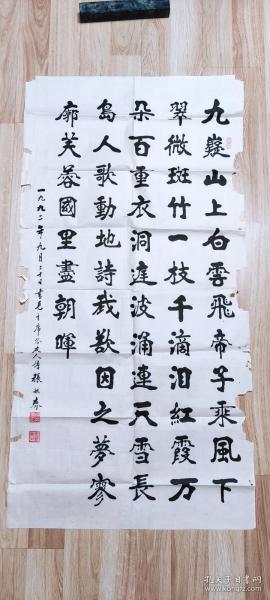 九嶷山上白雲飛帝子乘風下
翠微斑竹一枝千滴泪紅霞万
朵百重衣洞庭波涌連天雪長
島人歌動地詩我欲因之夢寥
廓芙蓉國里盡朝暉
一九九二年九月二十日書毛主席答友人詩 張春
孔夫子旧书网